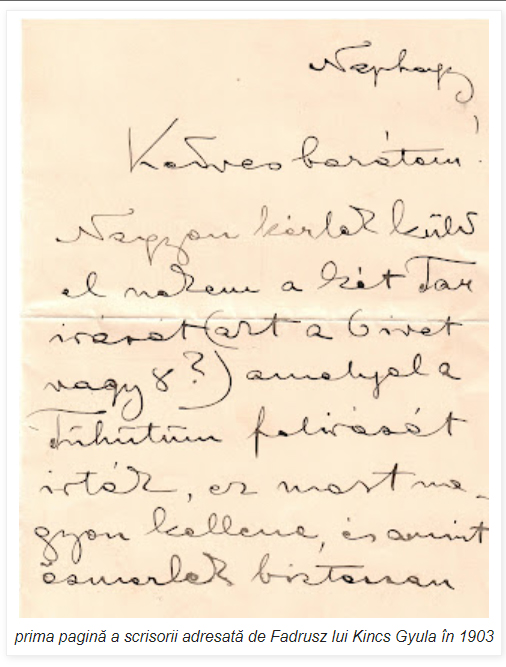 Naphegy
Kedves barátom!
Nagyon kérlek küld
el nekem a két Tar
irását (azt a 6 ivet
vagy 8?) amelyel a
Tühütüm felirását
irták, ez most na-
gyon kellene, és amint
ösmerlek biztossan
prima pagină a scrisorii adresată de Fadrusz lui Kincs Gyula în 1903